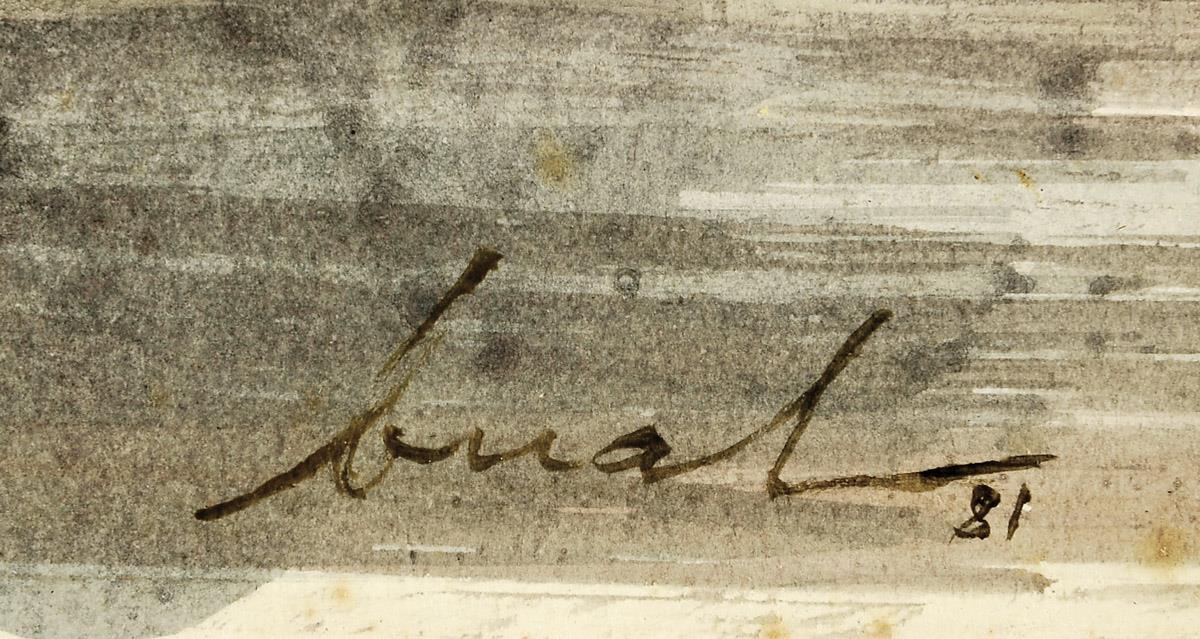 bual
81